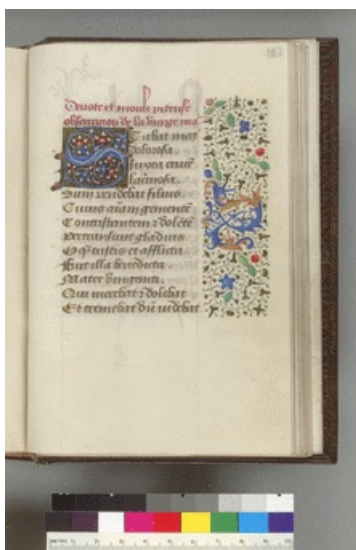 Devote et moult
obsecracion de la vierge ma
Stabat mat
dolorosa
iuxta crucē
lacrimosa
Dum pendebat filius
Cuius aīam gementē
Contristantem ⁊ dolētē
pertransivit gladius
O q̄ tristis et afflicta
Fuit illa benedicta
Mater vnigenti
Que merebat ⁊ dolebat
Et tremebat dū videbat